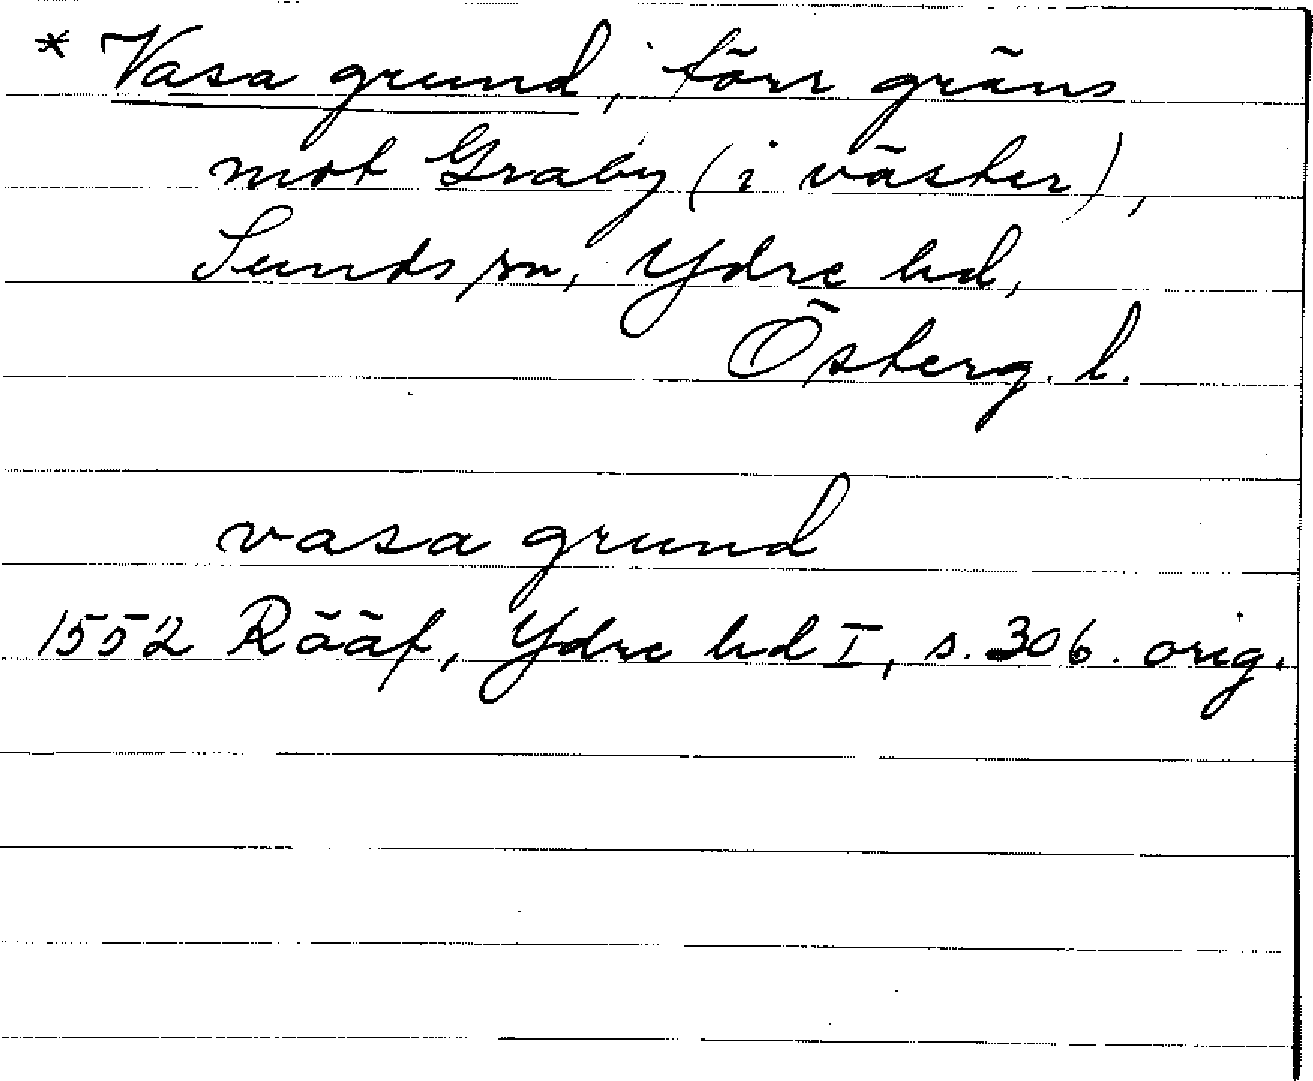 * Vasa grund, förr gräns
mot Graby (i väster),
Sunds sn, Ydre hd,
Österg. l.
vasa grund
1552 Rääf, Ydre hd I, s. 306. orig.